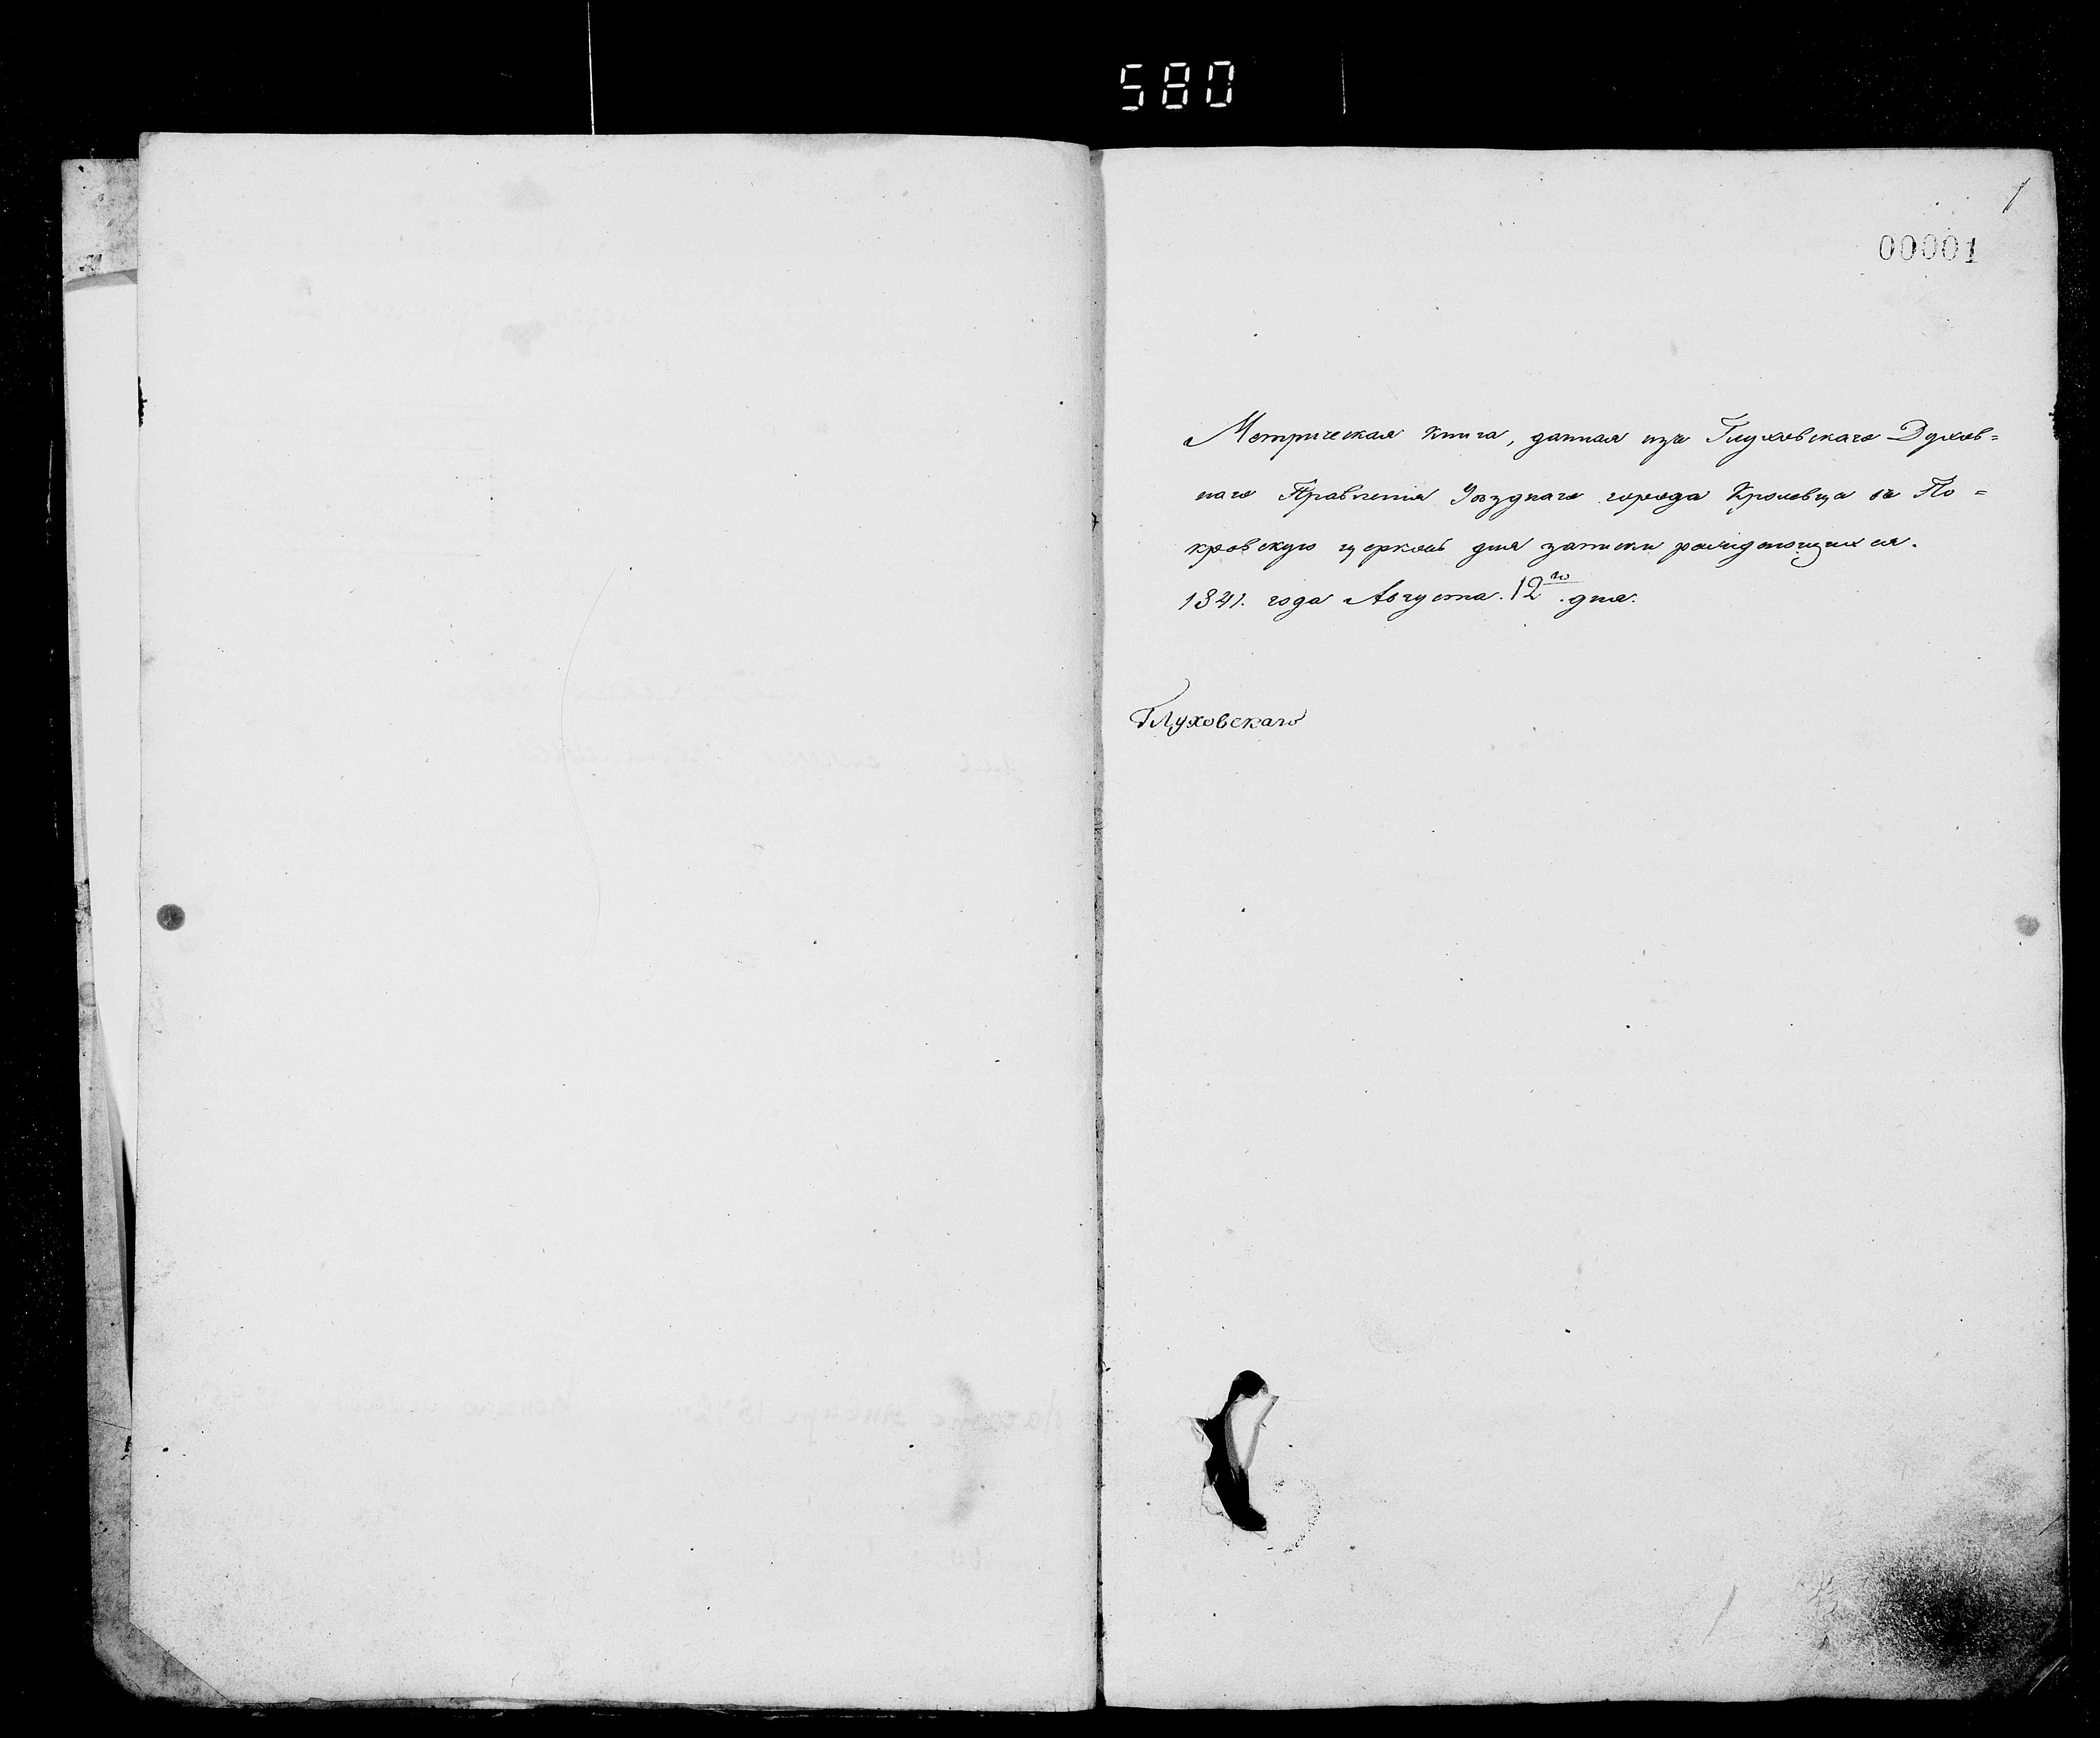 580
1
00001
Метрическая книга, данная изъ Глуховскаго Духов=
наго Правленія Уѣзднаго города Кролевца въ По=
кровскую церковь для записки раждающихся.
1841. года Августа. 12го дня.
Глуховскаго